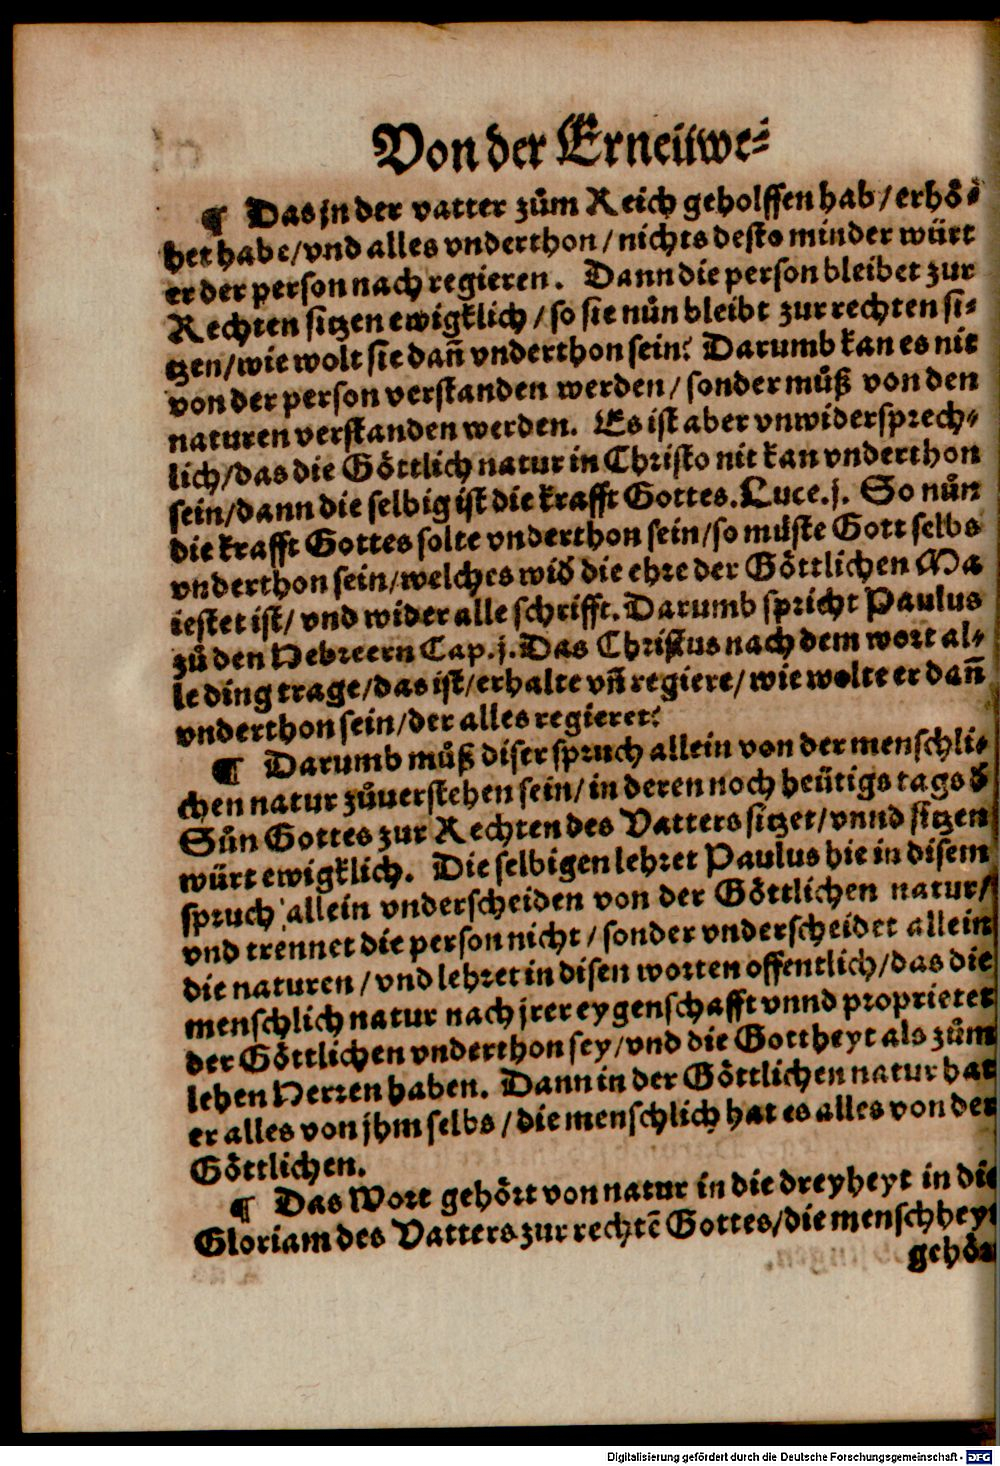 Von der Erneüwe⸗
¶ Das jn der vatter zům Reich geholffen hab/ erhö⸗
het habe/ vnd alles vnderthon/ nichts desto minder würt
er der person nach regieren. Dann die person bleibet zur
Rechten sitzen ewigklich/ so sie nůn bleibt zur rechten si⸗
tzen/ wie wolt sie dañ vnderthon sein? Darumb kan es nit
von der person verstanden werden/ sonder můß von den
naturen verstanden werden. Es ist aber vnwidersprech⸗
lich/ das die Göttlich natur in Christo nit kan vnderthon
sein/ dann die selbig ist die krafft Gottes. Luce. j. So nůn
die krafft Gottes solte vnderthon sein/ so müste Gott selbs
vnderthon sein/ welches wid̕ die ehre der Göttlichen Ma
iestet ist/ vnd wider alle schrifft. Darumb spricht Paulus
zů den Hebreern Cap. j. Das Christus nach dem wort al⸗
le ding trage/ das ist/ erhalte vñ regiere/ wie wolte er dañ
vnderthon sein/ der alles regieret?
¶ Darumb můß diser spruch allein von der menschli⸗
chen natur zůuerstehen sein/ in deren noch heütigs tags d̕
Sůn Gottes zur Rechten des Vatters sitzet/ vnnd sitzen
würt ewigklich. Die selbigen lehret Paulus hie in disem
spruch allein vnderscheiden von der Göttlichen natur/
vnd trennet die person nicht/ sonder vnderscheidet allein
die naturen/ vnd lehret in disen worten offentlich/ das die
menschlich natur nach jrer eygenschafft vnnd proprietet
der Göttlichen vnderthon sey/ vnd die Gottheyt als zům
lehen Herren haben. Dann in der Göttlichen natur hat
er alles von jhm selbs/ die menschlich hat es alles von der
Göttlichen.
¶ Das Wort gehört von natur in die dreyheyt in die
Gloriam des Vatters zur rechtē Gottes/ die menschheyt
gehör
Digitalisierung gefördert durch die Deutsche Forschungsgemeinschaft - DFG